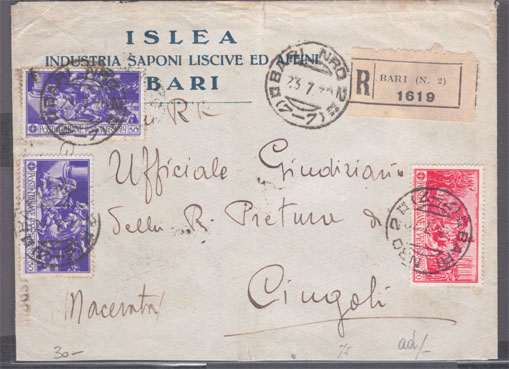 ISLEA
INDUSTRIA SAPONI LISCIVE ED AFFINI
BARI
BARI NRO 2
23.7
(7-7)
R
BARI (N. 2)
1619
RR
Ufficiale Giudiziario
della R. Pretura di
Cingoli
(Macerata)
BARI
NRO 2
30-
ad/-